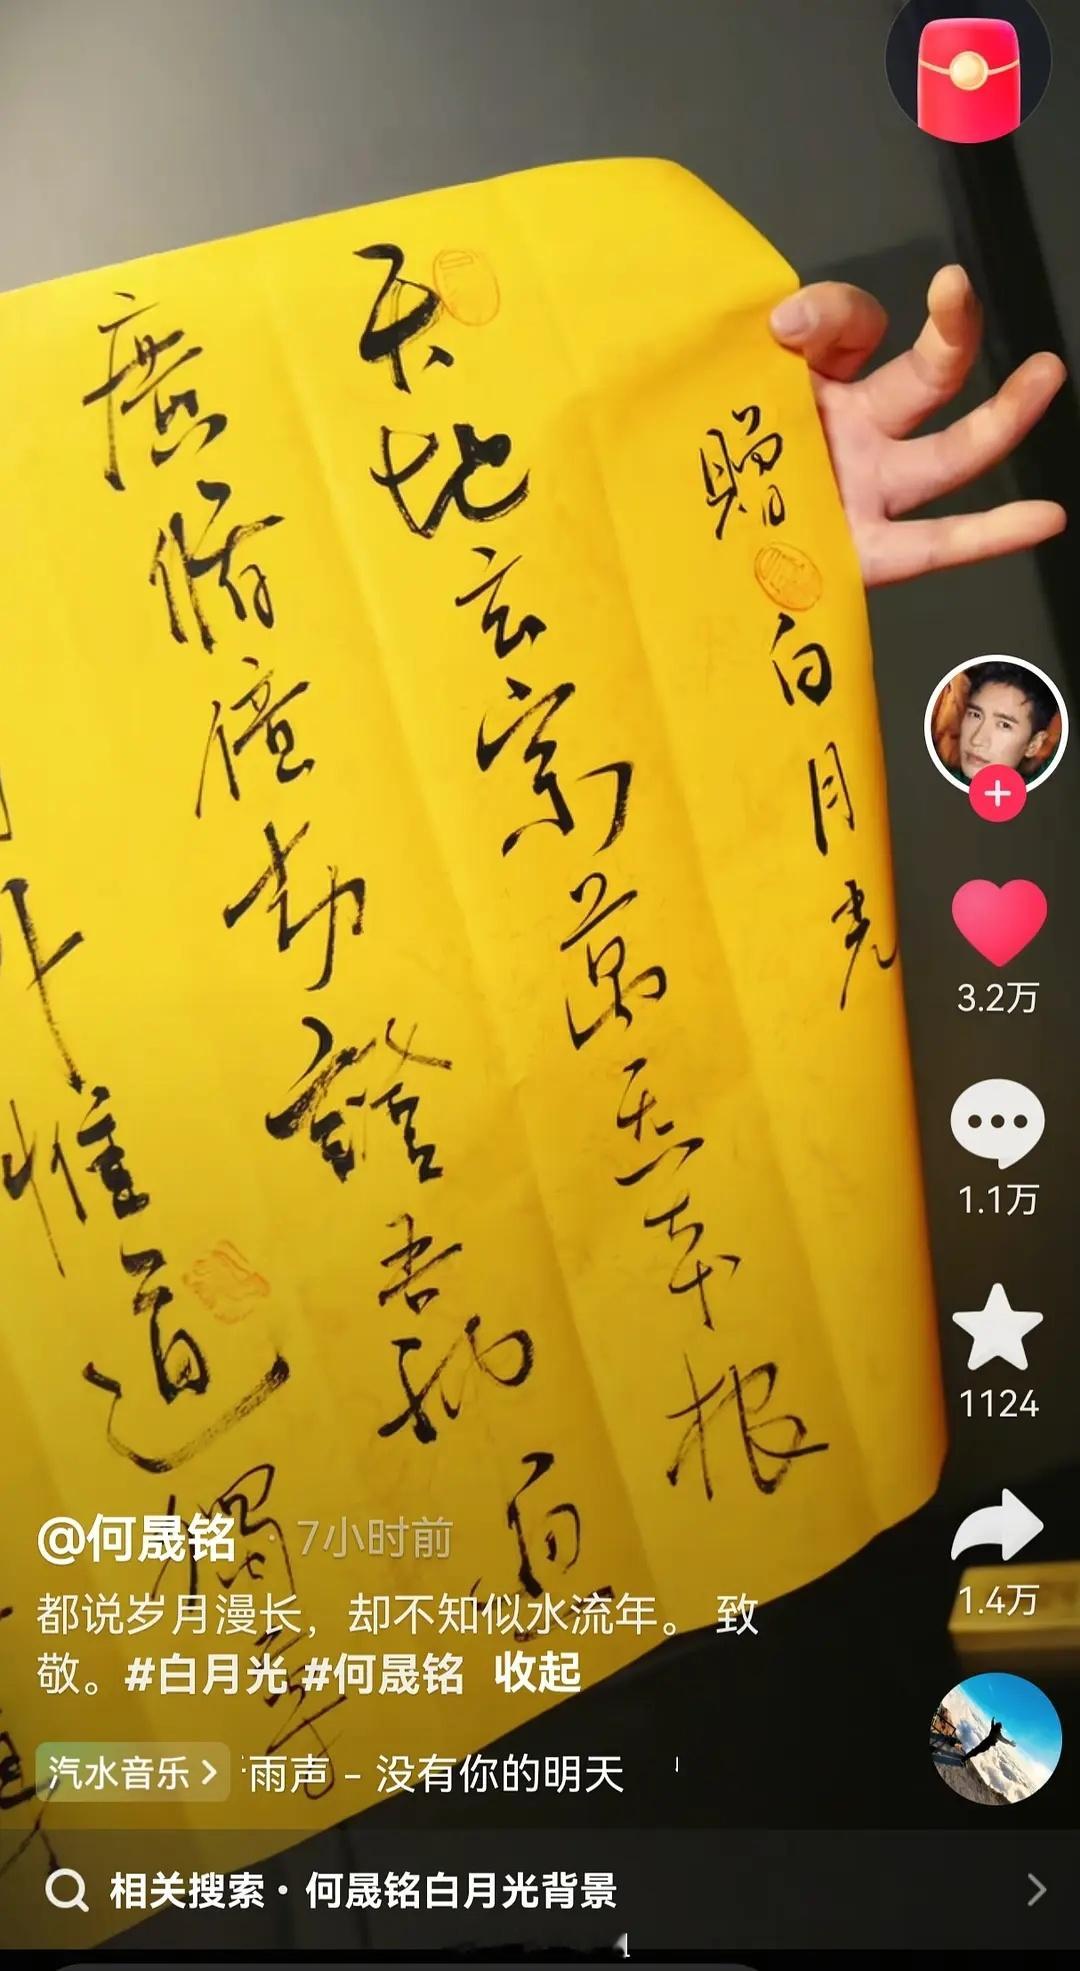 贈白月光
天地玄宗萬炁本根
廣脩億劫證吾神通
外惟道獨尊
3.2万
1.1万
1124
1.4万
@何晟铭 · 7小时前
都说岁月漫长，却不知似水流年。 致
敬。#白月光 #何晟铭 收起
汽水音乐 > 雨声 - 没有你的明天
相关搜索 · 何晟铭白月光背景